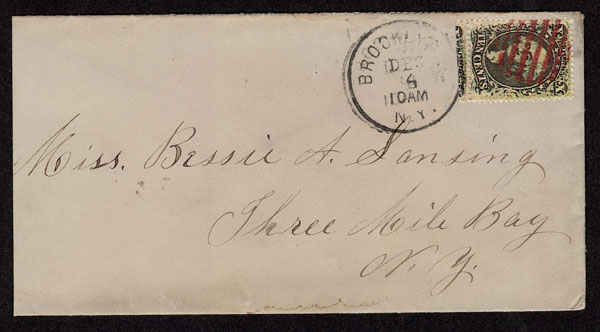 BROOKLYN
DEC
4
11 0AM
N.Y.
TEN CENTS
Miss. Bessie A. Lansing
Three Mile Bay
N. Y.